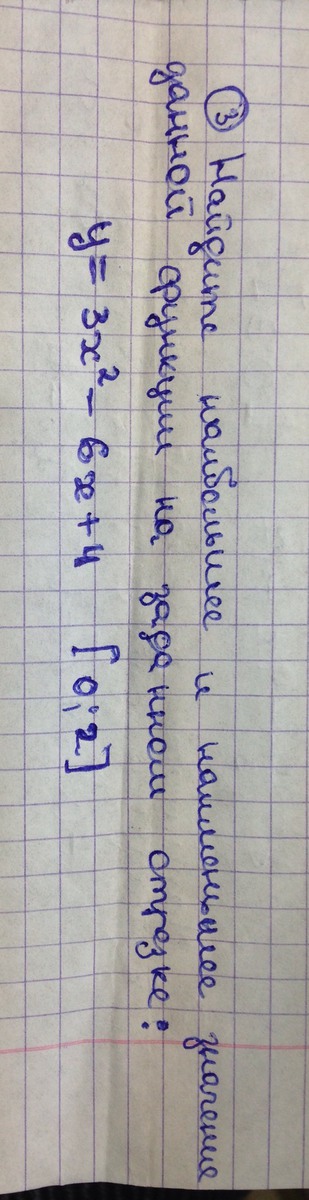 ③ Найдите наибольшее и наименьшее значение
данной функции на заданном отрезке:
y = 3x² - 6x + 4 [0; 2]